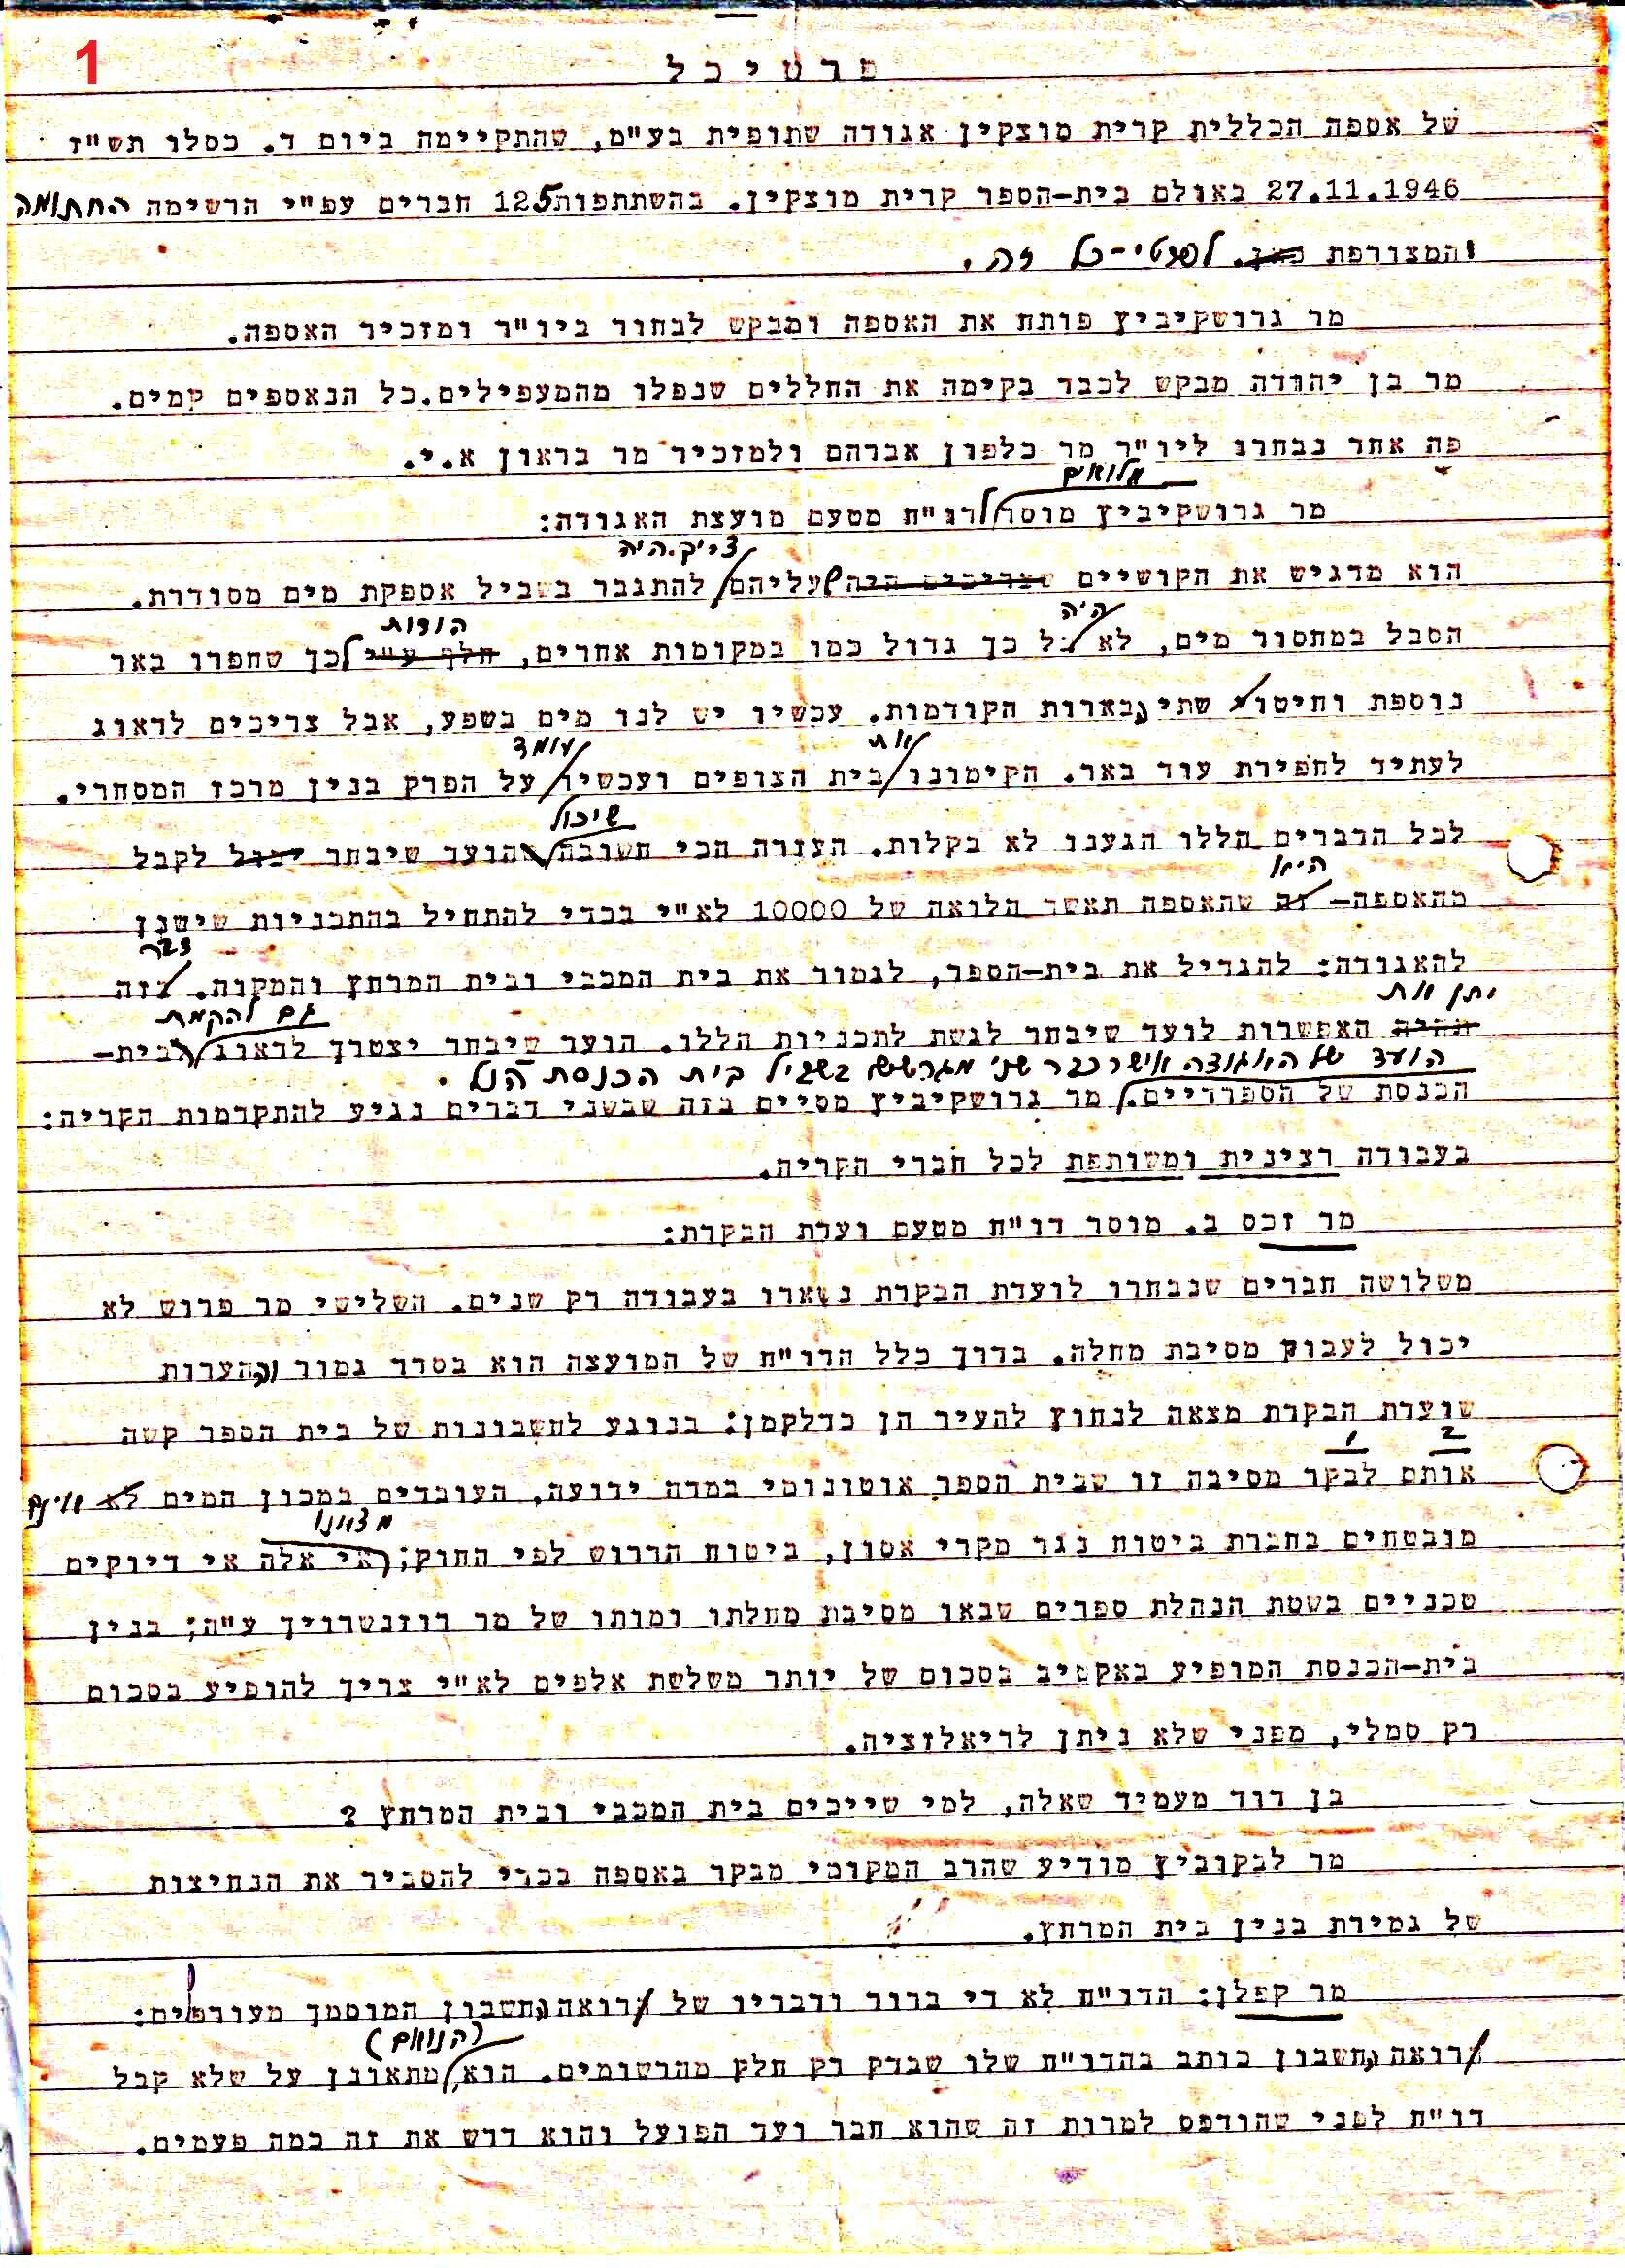 1
פרטיכל
של אספה הכללית קרית מוצקין אגודה שתופית בע"מ, שהתקיימה ביום ד. כסלו תש"ז
27.11.1946 באולם בית-הספר קרית מוצקין. בהשתתפות 125 חברים עפ"י הרשימה החתומה
והמצורפת כאן. לפרטי-כל זה.
מר גרושקיביץ פותח את האספה ומבקש לבחור ביו"ר ומזכיר האספה.
מר בן יהודה מבקש לכבד בקימה את החללים שנפלו מהמעפילים.כל הנאספים קמים.
פה אחד נבחרו ליו"ר מר כלפון אברהם ולמזכיר מר בראון א.י.
מלואים
מר גרושקיביץ מוסר דו"ח מטעם מועצת האגודה:
צריך.היה
הוא מדגיש את הקושיים שצריכים היה שעליהם להתגבר בשביל אספקת מים מסודרת.
היה הודות
הסבל במחסור מים, לא כל כך גדול כמו במקומות אחרים, חלף ע"י לכך שחפרו באר
נוספת וחיטוי שתי הבארות הקודמות. עכשיו יש לנו מים בשפע, אבל צריכים לדאוג
את עומד
לעתיד לחפירת עוד באר. הקימונו בית הצופים ועכשיו על הפרק בנין מרכז המסחרי.
שיכול
לכל הדברים הללו הגענו לא בקלות. העזרה הכי חשובה שהועד שיבחר יכול לקבל
היא
מהאספה- זה שהאספה תאשר הלואה של 10000 לא"י בכדי להתחיל בהתכניות שישנן
דבר
להאגודה: להגדיל את בית-הספר, לגמור את בית המכבי ובית המרחץ והמקוה. זזה
יתן את גם להקמת
תהיה האפשרות לועד שיבחר לגשת לתכניות הללו. הועד שיבחר יצטרך לדאוג לבית-
הועד של האגודה אישר כבר שני מגרשים בשביל בית הכנסת הנ"ל.
הכנסת של הספרדיים. מר גרושקיביץ מסיים בזה שבשני דברים נגיע להתקדמות הקריה:
בעבודה רצינית ומשותפת לכל חברי הקריה.
מר זכס ב. מוסר דו"ח מטעם ועדת הבקרת:
משלושה חברים שנבחרו לועדת הבקרת נשארו בעבודה רק שנים. השלישי מר פרוש לא
יכול לעבוד מסיבת מחלה. בדרך כלל הדו"ח של המועצה הוא בסדר גמור וההערות
שועדת הבקרת מצאה לנחוץ להעיר הן כדלקמן: בנוגע לחשבונות של בית הספר קשה
2 1
אותם לבקר מסיבה זו שבית הספר אוטונומי במדה ידועה, העובדים במכון המים לא אינם
מצאנו
מובטחים בחברת ביטוח נגד מקרי אסון, ביטוח הדרוש לפי החוק; אי אלה אי דיוקים
טכניים בשטת הנהלת ספרים שבאו מסיבת מחלתו ומותו של מר רוזנשרויך ע"ה; בנין
בית-הכנסת המופיע באקטיב בסכום של יותר משלשת אלפים לא"י צריך להופיע בסכום
רק סמלי, מפני שלא ניתן לריאלזציה.
בן דוד מעמיד שאלה, למי שייכים בית המכבי ובית המרחץ ?
מר לבקוביץ מודיע שהרב המקומי מבקר באספה בכדי להסביר את הנחיצות
של גמירת בנין בית המרחץ.
מר קפלן: הדו"ח לא די ברור ודבריו של רואה החשבון המוסמך מעורפלים:
(הנואם)
רואה החשבון כותב בהדו"ח שלו שבדק רק חלק מהרשומים. הוא, מתאונן על שלא קבל
דו"ח לפני שהודפס למרות זה שהוא חבר ועד הפועל והוא דרש את זה כמה פעמים.